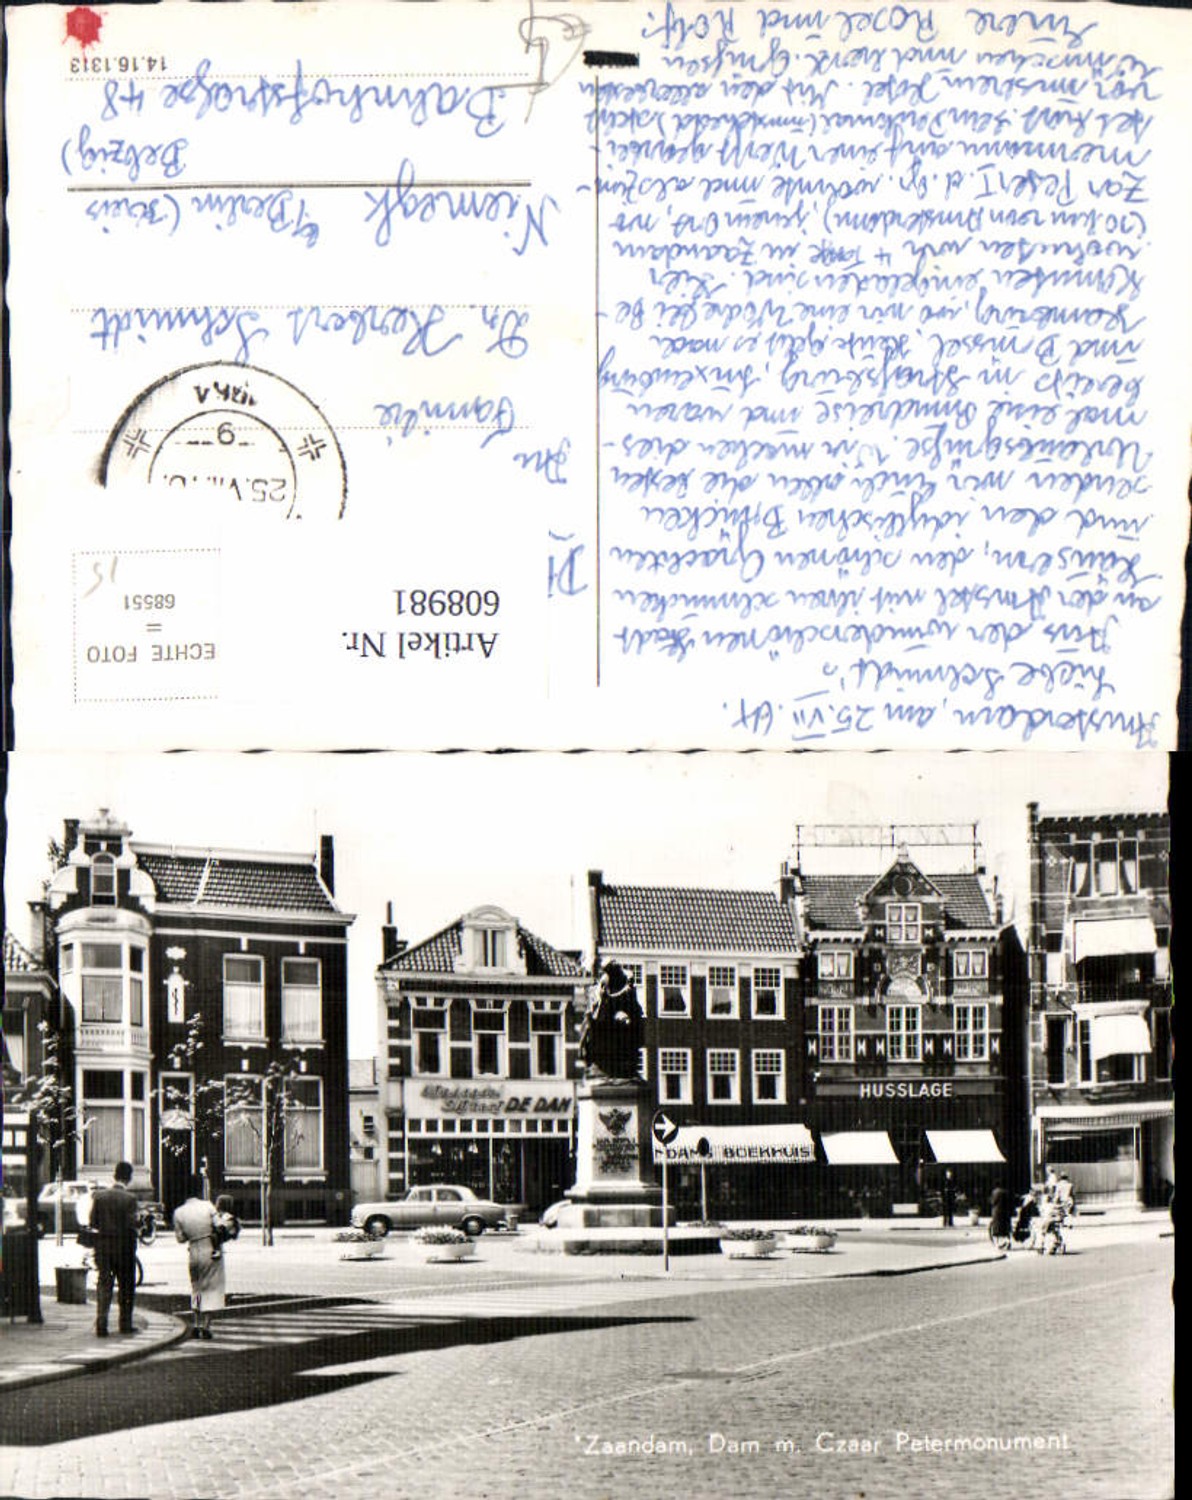 Amsterdam, am 25. VII. 64.
Liebe Schmidt's
Aus der wunderschönen Stadt
an der Amstel mit ihren schmucken
Häusern, den schönen Grachten
und den idyllischen Brücken
senden wir Euch allen die besten
Urlaubsgrüße. Wir machen dies-
mal eine Rundreise und waren
bereits in Straßburg, Luxemburg
und Brüssel. Heute geht es nach
wo wir eine Woche bei Be-
kannten eingeladen sind. Hier
wohnten wir 4 Tage in Zaandam
(10 km von Amsterdam), jenem Ort, wo
Zar Peter I. d. Gr. wohnte und als Zim-
mermann auf einer Werft gearbei-
tet hat. Sein Denkmal (umstehend) steht
vor unserem Hotel. Mit den allerbesten
Wünschen und herzl. Grüßen
Eure Rosel und Rolf.
ECHTE FOTO
=
68551
15
Artikel Nr.
608981
25.VII.
9
An
Familie
Dr. Herbert Schmidt
Niemegk b/Berlin (Kreis
Belzig)
Bahnhofstraße 48
14.16.1313
DE DAM
HUSSLAGE
BOEKHUIS
Zaandam, Dam m. Czaar Petermonument